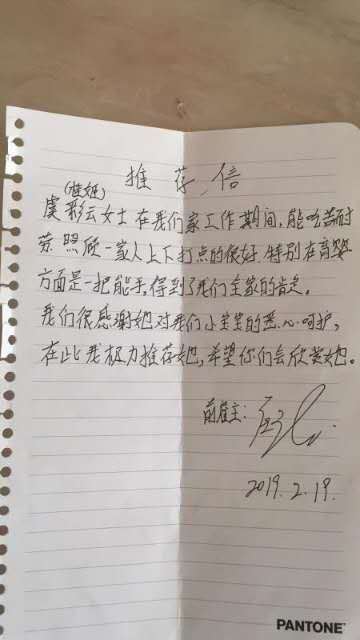 推荐信
(佳姐)
虞彩云女士在我们家工作期间,能吃苦耐
劳.照顾一家人上下打点的很好.特别在育婴
方面是一把能手,得到了我们全家的肯定。
我们很感谢她对我们小宝宝的悉心呵护,
在此我极力推荐她,希望你们会欣赏她。
前雇主:
2019.2.19.
PANTONE